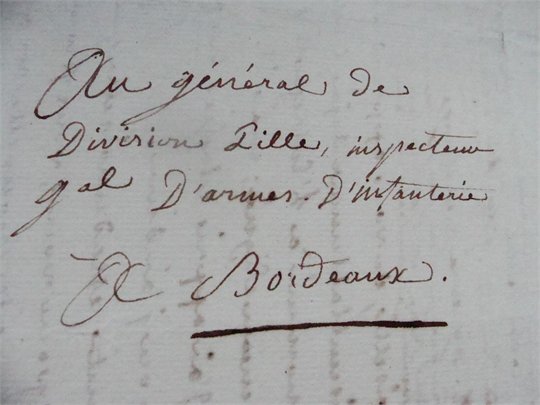 Au général de
Division Lille, inspecteur
gal D'armes. D'infanterie
A Bordeaux.